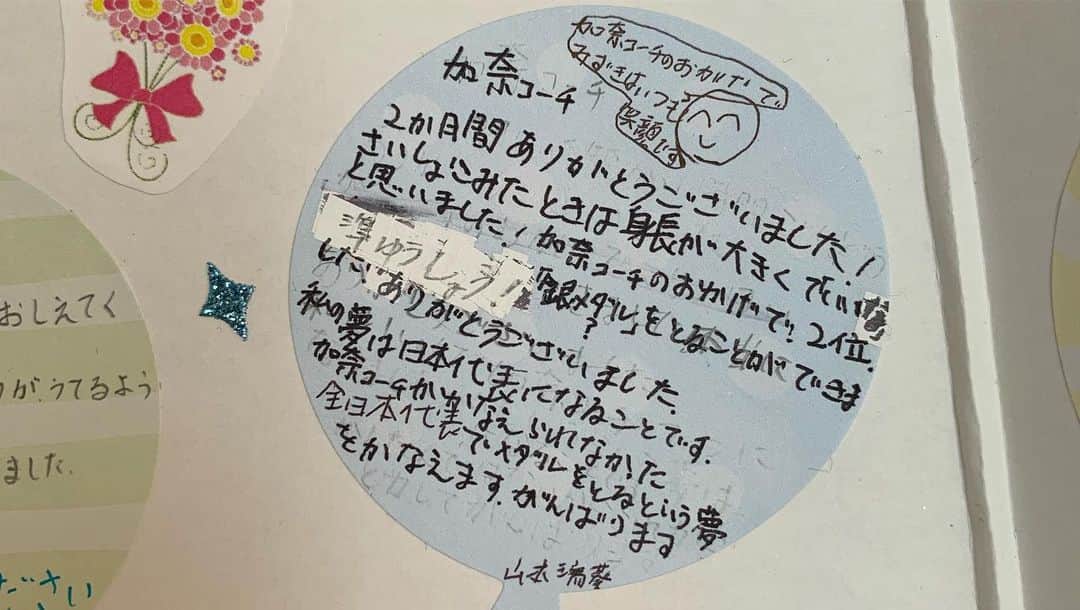 加奈コーチのおかげで
みずきはいつも
笑顔です
加奈コーチ
2か月間ありがとうございました!
さいしょにみたときは身長が大きくていいな
と思いました!加奈コーチのおかげで!2位.
準ゆうしょう!「銀メダル」をとることができま
?
した!ありがとうございました.
私の夢は日本代表になることです.
加奈コーチがかなえられてなかった
全日本代表でメダルをとるという夢
をかなえます.がんばります
山本
おしえてく
がうてるよう
ました.
ださい